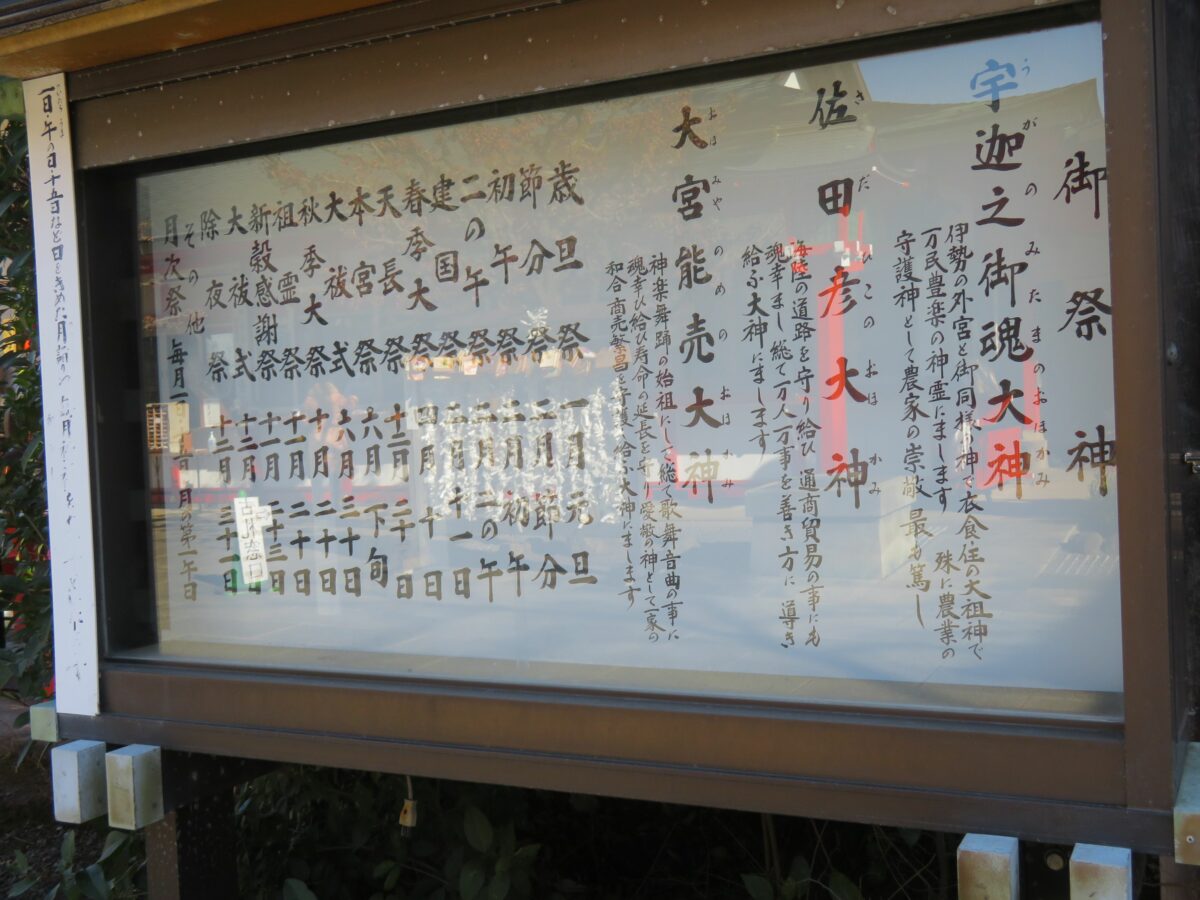 御祭神
宇迦之御魂大神
うがのみたまのおほかみ
伊勢の外宮と御同様の神で衣食住の大祖神で
万民豊楽の神霊にまします 殊に農業の
守護神として農家の崇敬最も篤し
佐田彦大神
さだひこのおほかみ
海陸の道路を守り給ひ 通商貿易の事にも
魂幸まし 総て万人万事を善き方に導き
給ふ大神にまします
大宮能売大神
おほみやのめのおほかみ
神楽舞踊の始祖にして総て歌舞音曲の事に
魂幸ひ給ひ寿命の延長を守り受験の神として一家の
和合商売繁昌を守護し給ふ大神にまします
歳旦祭 一月元旦
節分祭 二月節分
初午祭 二月初午
二の午祭 二月二の午
建国祭 二月十一日
春季大祭 四月十日
天長祭 十二月二十日
本宮祭 六月下旬
大祓式 六月三十日
秋季大祭 十月二十日
祖霊祭 十一月二十日
新穀感謝祭 十一月二十三日
大祓式 十二月三十一日
除夜祭
その他
月次祭 毎月一日 月の第一午日
古札窓口
一日・午の日・十五日など日をきめた月詣り